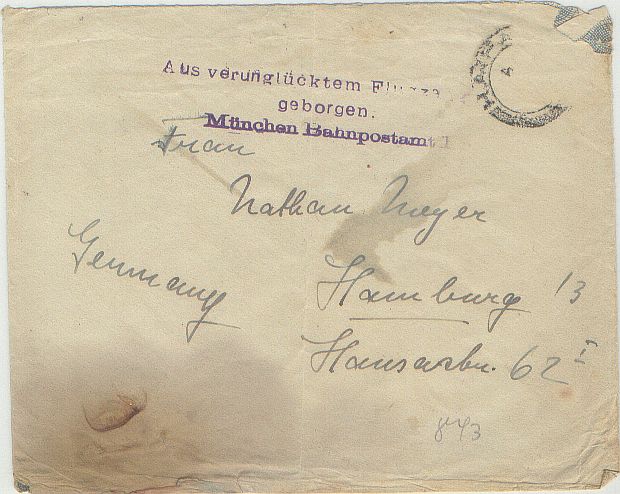 Aus verunglücktem
geborgen.
München Bahnpostamt 1
Frau
Nathan Meyer
Germany
Hamburg 13
Hansastr. 62 I
843